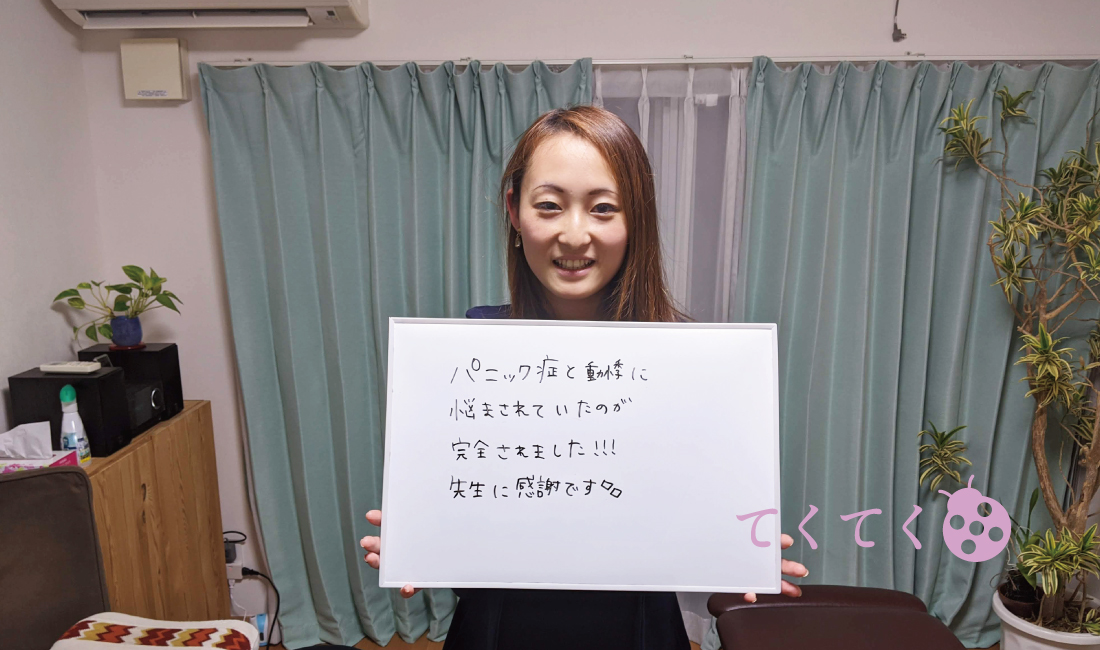 パニック症と動悸に
悩まされていたのが
完全されました!!!
先生に感謝です
てくてく